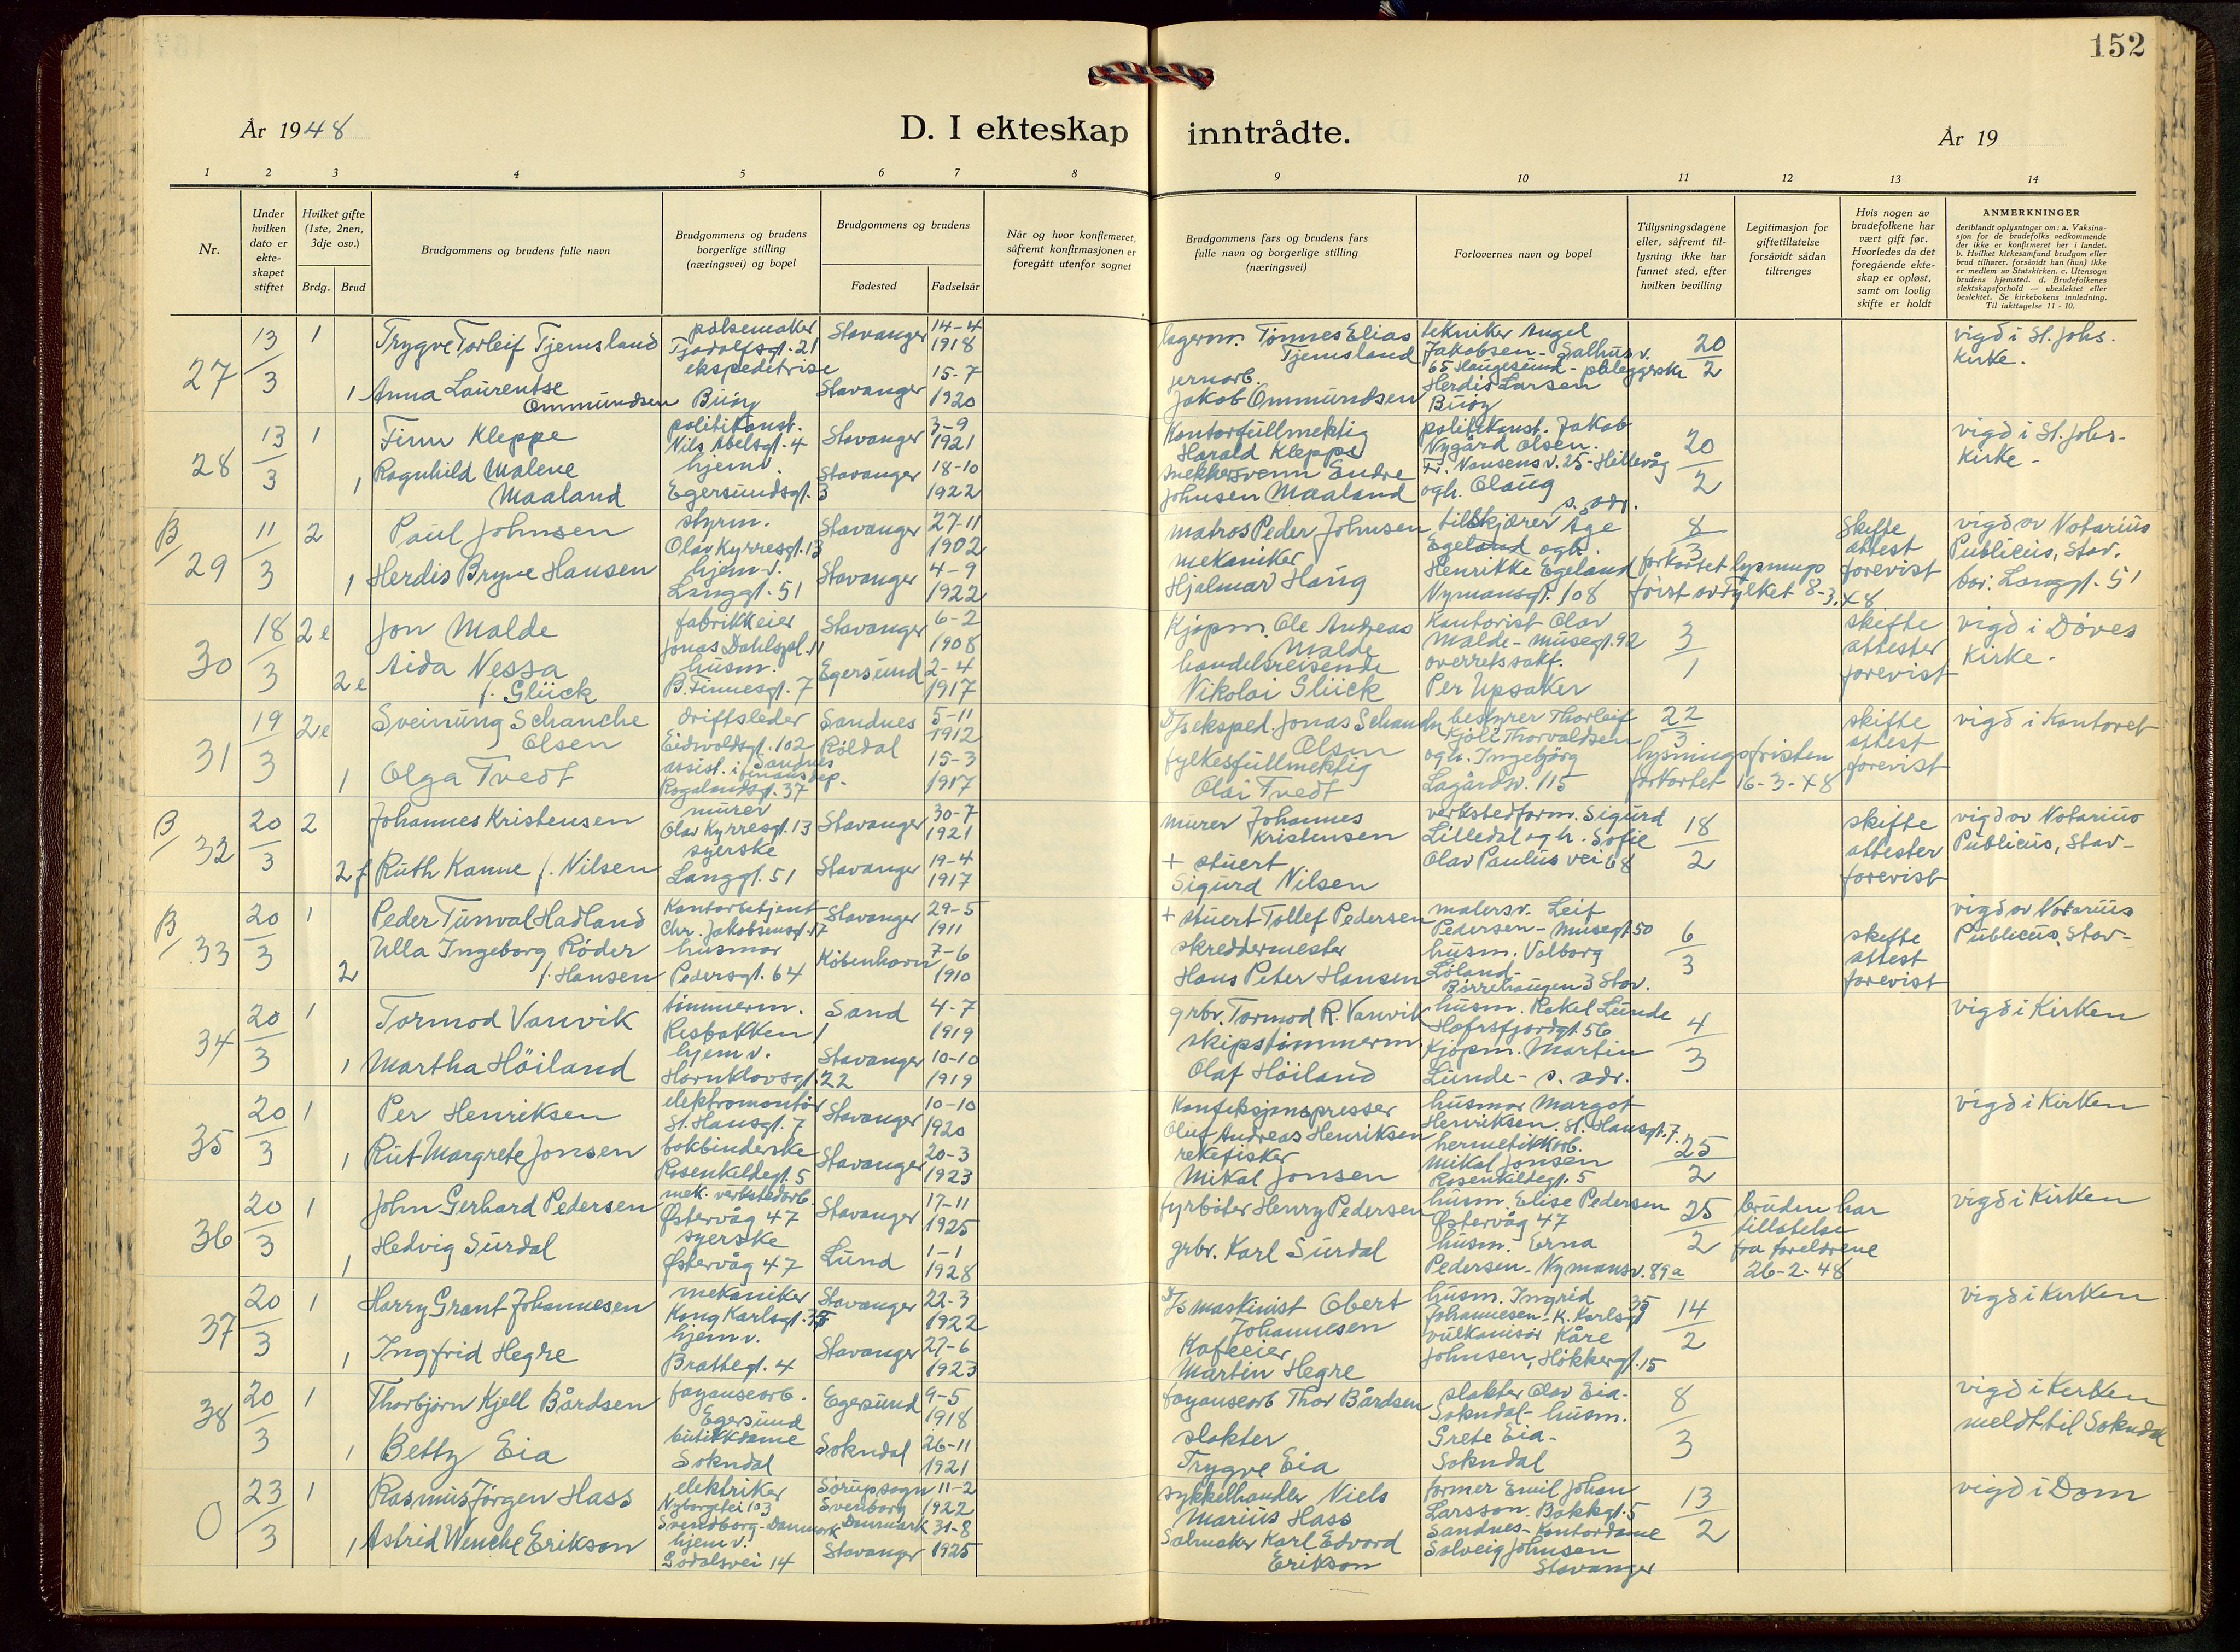 152
År 1948
D. I ekteskap inntrådte.
År 19
1 2 3 4 5 6 7 8 9 10 11 12 13 14
Nr.
Under hvilken dato er ekte-skapet stiftet
Hvilket gifte (1ste, 2nen, 3dje osv.)
Brdg. Brud
Brudgommens og brudens fulle navn
Brudgommens og brudens borgerlige stilling (næringsvei) og bopel
Brudgommens og brudens
Fødested Fødselsår
Når og hvor konfirmeret, såfremt konfirmasjonen er foregått utenfor sognet
Brudgommens fars og brudens fars fulle navn og borgerlige stilling (næringsvei)
Forlovernes navn og bopel
Tillysningsdagene eller, såfremt til-lysning ikke har funnet sted, efter hvilken bevilling
Legitimasjon for giftetillatelse forsåvidt sådan tiltrenges
Hvis nogen av brudefolkene har vært gift før. Hvorledes da det foregående ekte-skap er opløst, samt om lovlig skifte er holdt
ANMERKNINGER
deriblandt oplysninger om: a. Vaksina-sjon for de brudefolks vedkommende der ikke er konfirmeret her i landet. b. Hvilket kirkesamfund brudgom eller brud tilhører, forsåvidt han (hun) ikke er medlem av Statskirken. c. Utensogn brudens hjemsted. d. Brudefolkenes slektskapsforhold — ubeslektet eller beslektet. Se kirkebokens innledning. Til iakttagelse 11 - 10.
27 13/3 1 Trygve Torleif Tjemsland pølsemaker Tjodolfsgt. 21 Stavanger 14-4 1918 lagerm. Tønnes Elias Tjemsland tekniker Angel Jakobsen - Salhusv. 65 Haugesund - pleggerske 20/2 vigd i St. Johs. Kirke.
1 Anna Laurentse Ommundsen ekspeditrise Buøy Stavanger 15-7 1920 jernarb. Jakob Ommundsen Herdis Larsen Buøy
28 13/3 1 Finn Kleppe politikonst. Nils Abelsgt. 4 Stavanger 3-9 1921 Kontorfullmektig Harald Kleppe politikonst. Jakob Nygård Olsen. Fr. Nansens v. 25 - Hillevåg 20/2 vigd i St. Johs - Kirke -
1 Ragnhild Malene Maaland hjemv. Egersundsgt. 3 Stavanger 18-10 1922 Endre Johnsen Maaland ogh. Olaug s. adr.
B/ 29 11/3 2 Paul Johnsen styrm. Olav Kyrresgt. 13 Stavanger 27-11 1902 matros Peder Johnsen tilskjærer Åge Egeland ogh. 8/3 Skifte attest forevist vigd av Notarius Publicus, Stav.
1 Herdis Bryne Hansen hjemv. Langgt. 51 Stavanger 4-9 1922 mekaniker Hjalmar Haug Henrikke Egeland Nymansgt. 108 forkortet av Fylket 8-3-48 Langgt. 51
30 18/3 2e Jon Malde fabrikkeier Jonas Dahlspl. 11 Stavanger 6-2 1908 Kjøpm. Ole Andreas Malde Kontorist Olav Malde - Musegt. 92 3/1 skifte attester forevist vigd i Døves Kirke -
2e Aida Nessa f. Glück husm. B. Finnesgt. 7 Egersund 2-4 1917 handelsreisende Nikolai Glück overretssakf. Per Upsaker
31 19/3 2e Sveinung Schanche Olsen driftsleder Eidsvoldsgt. 102 Sandnes Sandnes 5-11 1912 Jonas Schanche Olsen bestyrer Thorleif Kjöll Thorvaldsen 22/3 skifte attest forevist vigd i Kontoret
1 Olga Tvedt assist. i finansdep. Rogalandsgt. 37 Röldal 15-3 1917 fylkesfullmektig Olai Tvedt ogh. Ingebjörg Lagårdsv. 115 lysningsfristen forkortet 16-3-48
B/ 32 20/3 2 Johannes Kristensen murer Olav Kyrresgt. 13 Stavanger 30-7 1921 murer Johannes Kristensen verkstedform. Sigurd Lilledal ogh. Sofie 18/2 skifte attester forevist vigd av Notarius Publicus, Stav-
2f Ruth Kanne f. Nilsen syerske Langgt. 51 Stavanger 19-4 1917 + stuert Sigurd Nilsen Olav Paulus vei 68
B/ 33 20/3 1 Peder Tunval Hadland Kontorbetjent Chr. Jakobsensgt. 17 Stavanger 29-5 1911 + stuert Tollef Pedersen malersv. Leif Pedersen - Musegt. 50 6/3 skifte attest forevist vigd av Notarius Publicus, Stav-
2 Ulla Ingeborg Röder f. Hansen husmor Pedersgt. 64 København 7-6 1910 skreddermester Hans Peter Hansen husm. Valborg Löland - Børrehaugen 3 Stav.
34 20/3 1 Tormod Vanvik tömmerm. Risbakken 1 Sand 4-7 1919 grbr. Tormod R. Vanvik husm. Rakel Lunde Hafrsfjordgt. 56 4/3 vigd i Kirken
1 Martha Höiland hjemv. Hornklovsgt. 22 Stavanger 10-10 1919 skipstömmerm. Olaf Höiland Kjöpm. Martin Lunde - s. adr.
35 20/3 1 Per Henriksen elektromontör St. Hansgt. 7 Stavanger 10-10 1920 Konfeksjonspresser Oluf Andreas Henriksen husmor Margot Henriksen. St. Hansgt. 7. 25/2 vigd i Kirken
1 Rut Margrete Jonsen bokbinderske Rosenkildegt. 5 Stavanger 20-3 1923 rekefisker Mikal Jonsen hermetikkarb. Mikal Jonsen Rosenkildegt. 5
36 20/3 1 John Gerhard Pedersen mek. verkstedarb. Østervåg 47 Stavanger 17-11 1925 fyrböter Henry Pedersen husm. Elise Pedersen Østervåg 47 25/2 bruden har tillatelse fra foreldrene 26-2-48 vigd i Kirken
1 Hedvig Surdal syerske Østervåg 47 Lund 1-1 1928 grbr. Karl Surdal husm. Erna Pedersen - Nymansv. 89a
37 20/3 1 Harry Grant Johannesen mekaniker Kong Karlsgt. Stavanger 22-3 1922 maskinist Obert Johannesen husm. Ingrid Johannesen - K. Karlsgt 35 14/2 vigd i Kirken
1 Ingfrid Hegre hjemv. Brattegt. 4 Stavanger 27-6 1923 Kafeeier Martin Hegre vulkanisör Kåre Johnsen, Hökkergt. 15
38 20/3 1 Thorbjörn Kjell Bårdsen fayansearb. Egersund Egersund 9-5 1918 fayansearb Thor Bårdsen slakter Olav Eia - Sokndal - husm. 8/3 vigd i Kirken meldt til Sokndal
1 Betty Eia butikkdame Sokndal Sokndal 26-11 1921 slakter Trygve Eia Grete Eia - Sokndal
0 23/3 1 Rasmus Jörgen Hass elektriker Nyborgvei 103 Svendborg - Danmark Sörup sogn Svenborg Danmark 11-2 1922 sykkelhandler Niels Marius Hass former Emil Johan Larsson - Bakkgt. 5 Sandnes - 13/2 vigd i Dom
1 Astrid Wenche Erikson hjemv. Godalsvei 14 Stavanger 31-8 1925 Salmaker Karl Edvard Erikson Kontordame Solveig Johnsen Stavanger